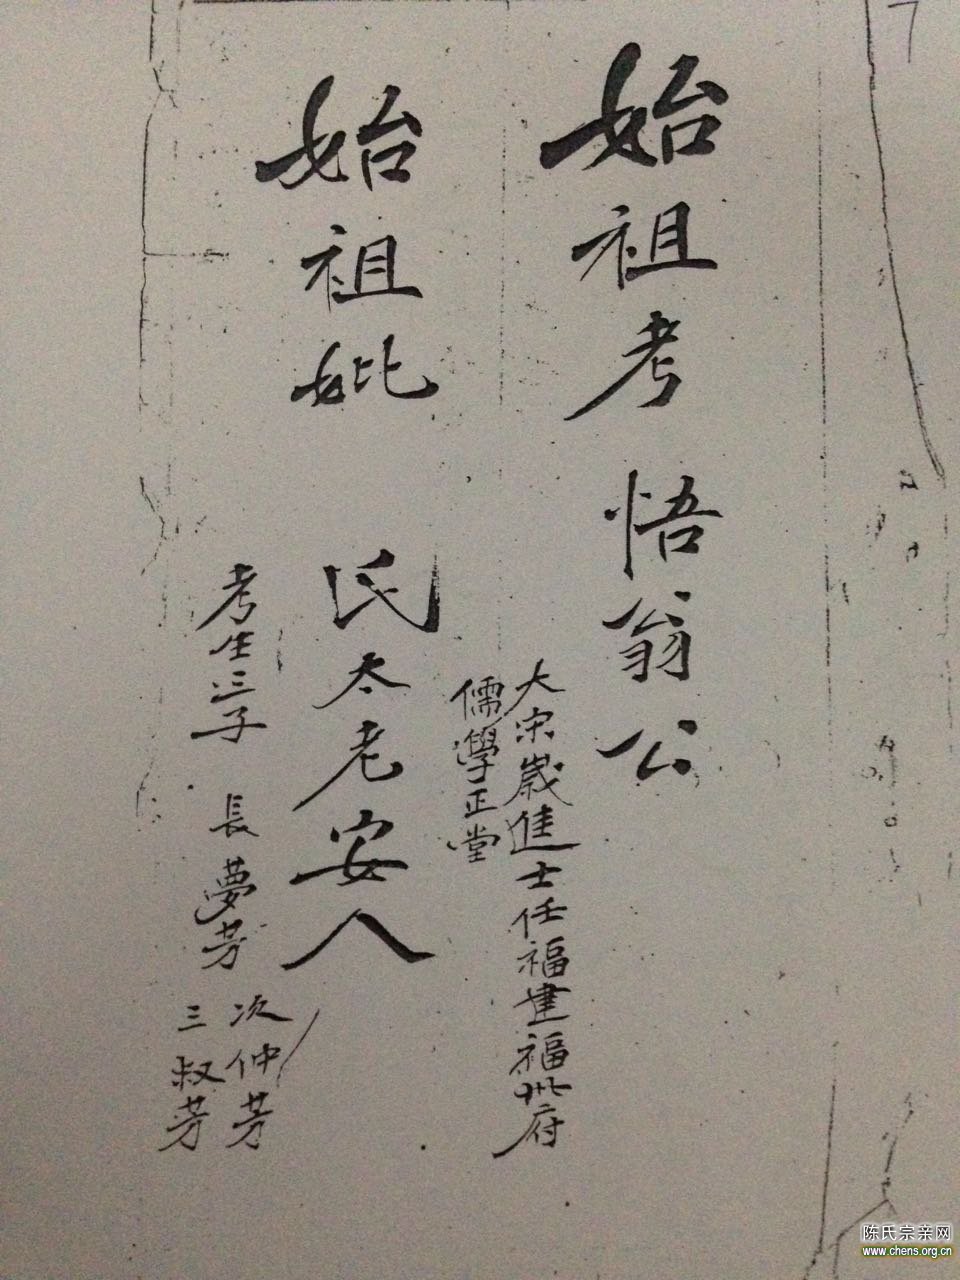 7
始祖考 悟翁公
大宋歲進士任福建福州府
儒學正堂
始祖妣 氏太老安人
考生三子 長夢芳
次仲芳
三叔芳
陈氏宗亲网
www.chens.org.cn